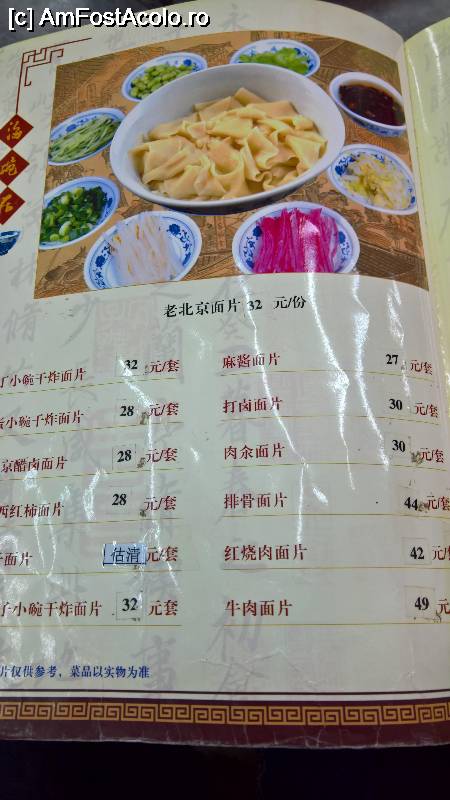 [c] AmFostAcolo.ro
海碗居
老北京面片 32 元/份
丁小碗干炸面片 32 元/套
麻酱面片 27 元/套
小碗干炸面片 28 元/套
打卤面片 30 元/套
京醋卤面片 28 元/套
肉汆面片 30 元/套
西红柿面片 28 元/套
排骨面片 44 元/套
面片 估清 元/套
红烧肉面片 42 元/
子小碗干炸面片 32 元/套
牛肉面片 49 元/
片仅供参考，菜品以实物为准